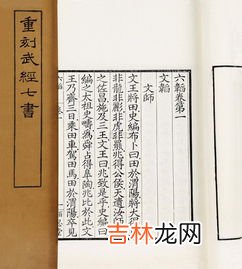 六韜卷第一
文韜
文師
文王將田史編布卜曰田於渭陽將大
非龍非彲非虎非羆兆得公侯天遺汝
之佐昌施及三王文王曰兆致是乎史編曰
編之太祖史疇為舜占得皋陶兆比於此文
王乃齋三日乘田車駕田馬田於渭陽卒見
重刻武經七書
吉林龙网